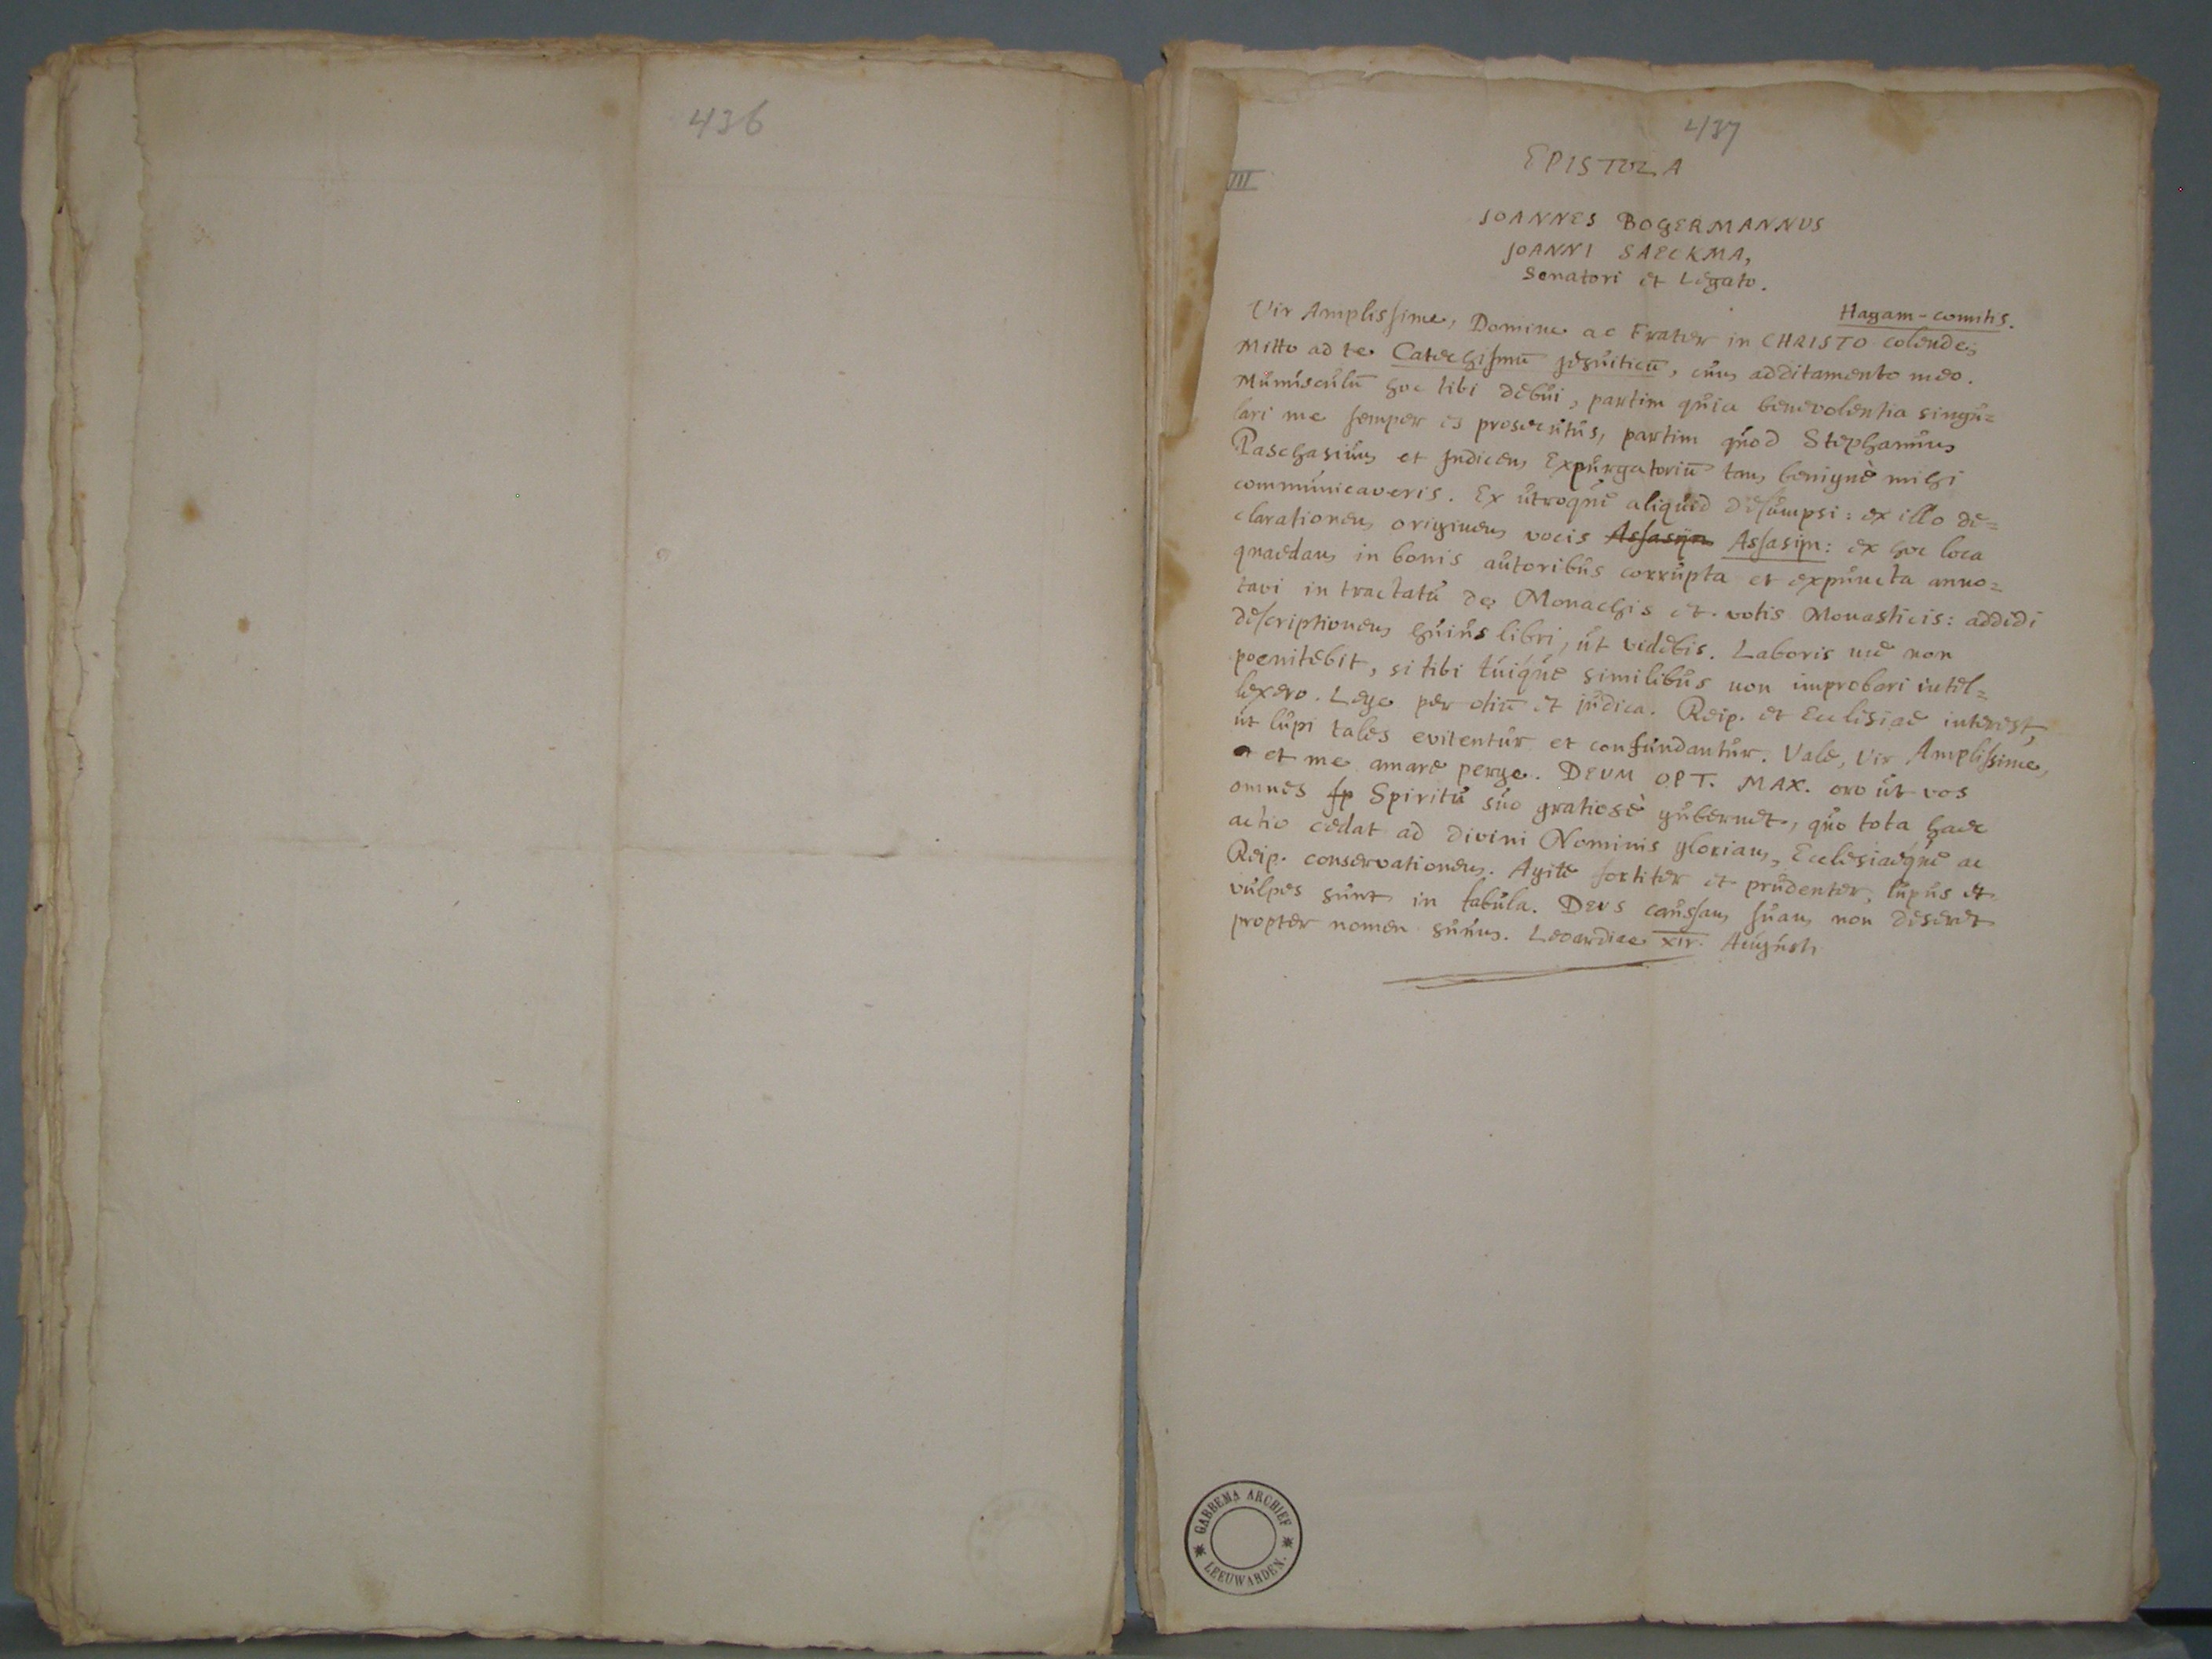 436
437
III
EPISTOLA
JOANNES BOGERMANNUS
JOANNI SAECKMA,
Senatori et Legato.
Hagam-comitis.
Vir Amplissime, Domine ac Frater in CHRISTO colende;
Mitto ad te Catechismū jesuiticū, cum additamento meo.
Munusculū hoc tibi debui, partim quia benevolentia singu=
lari me semper es prosecutus, partim quod Stephanum
Paschasium et Indicem Expurgatoriū tam benignè mihi
communicaveris. Ex utroque aliquid desumpsi: ex illo de=
clarationem originem vocis Assasijn Assasin: ex hoc loca
quaedam in bonis autoribus corrupta et expuncta anno=
tavi in tractatu de Monachis et votis Monasticis: addidi
descriptionem huius libri, ut videbis. Laboris me non
poenitebit, si tibi tuique similibus non improbari intel=
lexero. Lege per otiū et judica. Reip. et Ecclisiae interest,
ut lupi tales evitentur et confundantur. Vale, Vir Amplissime,
et me amare perge. DEUM OPT. MAX. oro ut vos
omnes sp Spiritu suo gratiosè gubernet, quo tota haec
actio cedat ad divini Nominis gloriam, Ecclesiaeque ac
Reip. conservationem. Agite fortiter et prudenter, lupus et
vulpes sunt in fabula. Deus caussam suam non deseret
propter nomen suum. Leoardiae XIV. Augusti
GABBEMA ARCHIEF
LEEUWARDEN.